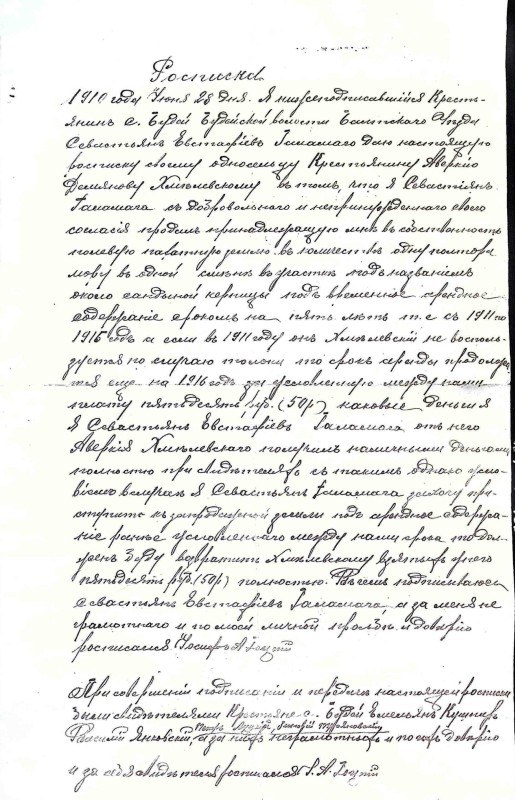 Росписка
1910 года Июня 28 дня. Я нижеподписавшийся Кресть-
янинъ с. Будей Будейской волости Балтского Уезда
Севастьянъ Евстафіевъ Гамамага даю настоящую
росписку своему односельцу Крестьянину Аверкію
Демянову Хмѣлевскому въ томъ, что я Севастіянъ
Гамамага съ добровольнаго и непринужденнаго своего
согласія продалъ принадлежащую мнѣ въ собственность
полевую пахатную землю въ количествѣ одну полтора
въ одной смѣнѣ въ участкѣ подъ названіемъ
около керницы подъ временное арендное
содержаніе срокомъ на пять лѣтъ т.е. съ 1911 по
1915 годъ а если въ 1911 году онъ Хмѣлевскій не восполь-
зуется по случаю то срокъ аренды продолжи-
тся еще на 1916 годъ за условленную между нами
плату пятьдесятъ руб. (50 р) каковые деньги я
Я Севастьянъ Евстафіевъ Гамамага отъ него
Аверкія Хмѣлевскаго получилъ наличными деньгами
полностью при свидѣтеляхъ съ такимъ однако усло-
віемъ въ случаѣ я Севастьянъ Гамамага захочу при-
ступить къ запроданной земли подъ арендное содержа-
ніе раньше условленнаго между нами срока то дол-
женъ буду возвратить Хмѣлевскому взятыхъ у него
пятьдесятъ руб. (50 р) полностью. Въ чемъ подписываюсь
Севастьянъ Евстафіевъ Гамамага, а за меня не
грамотнаго и по моей личной прозьбѣ и довѣрію
росписался Іосифъ А.
При совершеніи подписаніи и передачѣ настоящей росписки
были свидѣтелями Крестьяне с. Будей Емельянъ Кушниръ
Петръ
Василій Янковскій, а за нихъ неграмотныхъ и по ихъ довѣрію
и за себя свидѣтеля росписался І. А.